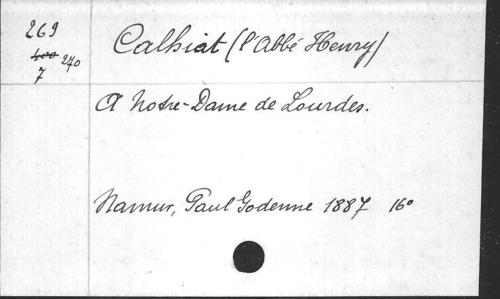 269
Calhiat (l'Abbé Henry)
400 240
7
A Notre-Dame de Lourdes.
Namur, Paul Godenne 1887 16°